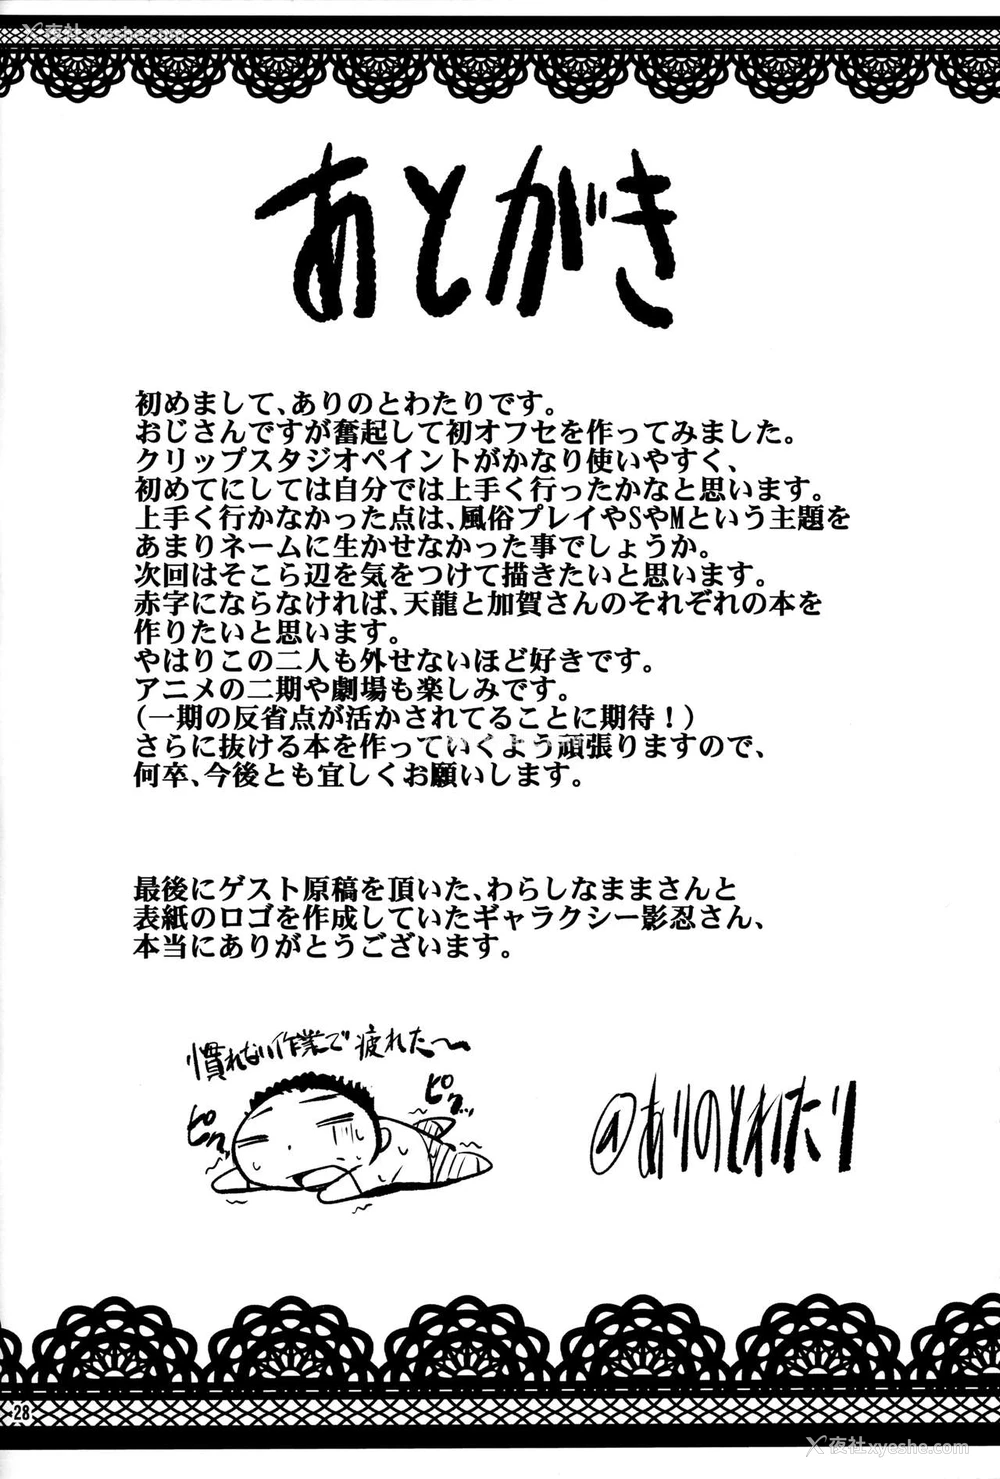 夜社xyeshe.com
あとがき
初めまして、ありのとわたりです。
おじさんですが奮起して初オフセを作ってみました。
クリップスタジオペイントがかなり使いやすく、
初めてにしては自分では上手く行ったかなと思います。
上手く行かなかった点は、風俗プレイやSやMという主題を
あまりネームに生かせなかった事でしょうか。
次回はそこら辺を気をつけて描きたいと思います。
赤字にならなければ、天龍と加賀さんのそれぞれの本を
作りたいと思います。
やはりこの二人も外せないほど好きです。
アニメの二期や劇場も楽しみです。
(一期の反省点が活かされてることに期待!)
さらに抜ける本を作っていくよう頑張りますので、
何卒、今後とも宜しくお願いします。
最後にゲスト原稿を頂いた、わらしなままさんと
表紙のロゴを作成していたギャラクシー影忍さん、
本当にありがとうございます。
慣れない作業で疲れた〜
ピク
ピク…
@ありのとわたり
28
夜社xyeshe.com